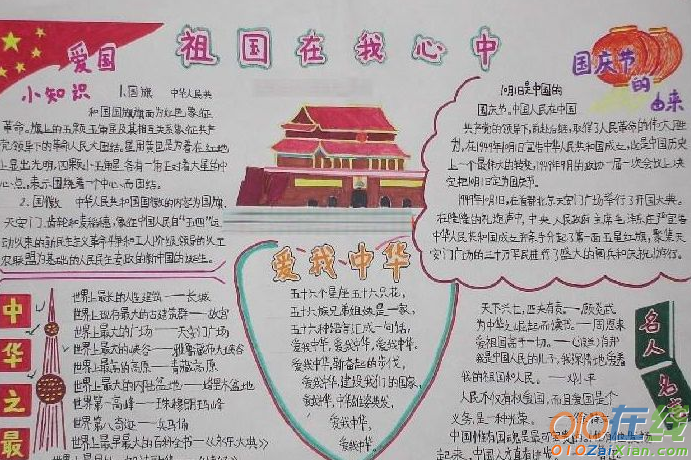 祖国在我心中
爱国
小知识
1.国旗 中华人民共
和国国旗旗面为红色,象征
革命。旗上的五颗五角星及其相互关系象征共产
党领导下的革命人民大团结。星用黄色是为着在红地
上显出光明,四颗小五角星各有一角正对着大星的中
心点,表示围绕着一个中心而团结。
2.国徽 中华人民共和国国徽的内容为国旗、
天安门、齿轮和麦稻穗,象征中国人民自“五四”运
动以来的新民主主义革命斗争和工人阶级领导的以工
农联盟为基础的人民民主专政的新中国的诞生。
国庆节
的
由来
10月1日是中国的
国庆节。中国人民在中国
共产党的领导下,前赴后继,取得了人民革命的伟大胜
利,在1949年10月1日宣告中华人民共和国成立,这是中国历史
上一个最伟大的转变,1949年9月的政协一届一次会议上决
定把10月1日定为国庆节。
1949年10月1日,在首都北京天安门广场举行了开国大典。
在隆隆的礼炮声中,中央人民政府主席毛泽东庄严宣告
中华人民共和国成立并亲手升起了第一面五星红旗。聚集天
安门广场的三十万军民进行了盛大的阅兵和庆祝游行。
中华之最
世界上最长的人造建筑——长城
世界上现存最大的古建筑群——故宫
世界上最大的广场——天安门广场
世界上最大的峡谷——雅鲁藏布大峡谷
世界上最高的高原——青藏高原
世界上最大的内陆盆地——塔里木盆地
世界第一高峰——珠穆朗玛峰
世界第八奇迹——兵马俑
世界上最早最大的百科全书——《永乐大典》
爱我中华
五十六个星座五十六只花,
五十六族兄弟姐妹是一家,
五十六种语言汇成一句话,
爱我中华,爱我中华,爱我中华
爱我中华,健奋起的步伐,
爱我中华,建设我们的国家,
爱我中华,
爱我中华,
爱我中华。
名人名言
天下兴亡,匹夫有责。——顾炎武
为中华之崛起而读书。——周恩来
爱祖国高于一切。——
我是中国人民的儿子,我深情地爱着
我的祖国和人民。——邓小平
人民不仅有权爱国,而且爱国是个
义务,是一种光荣。
010在线
010ZaiXian.com